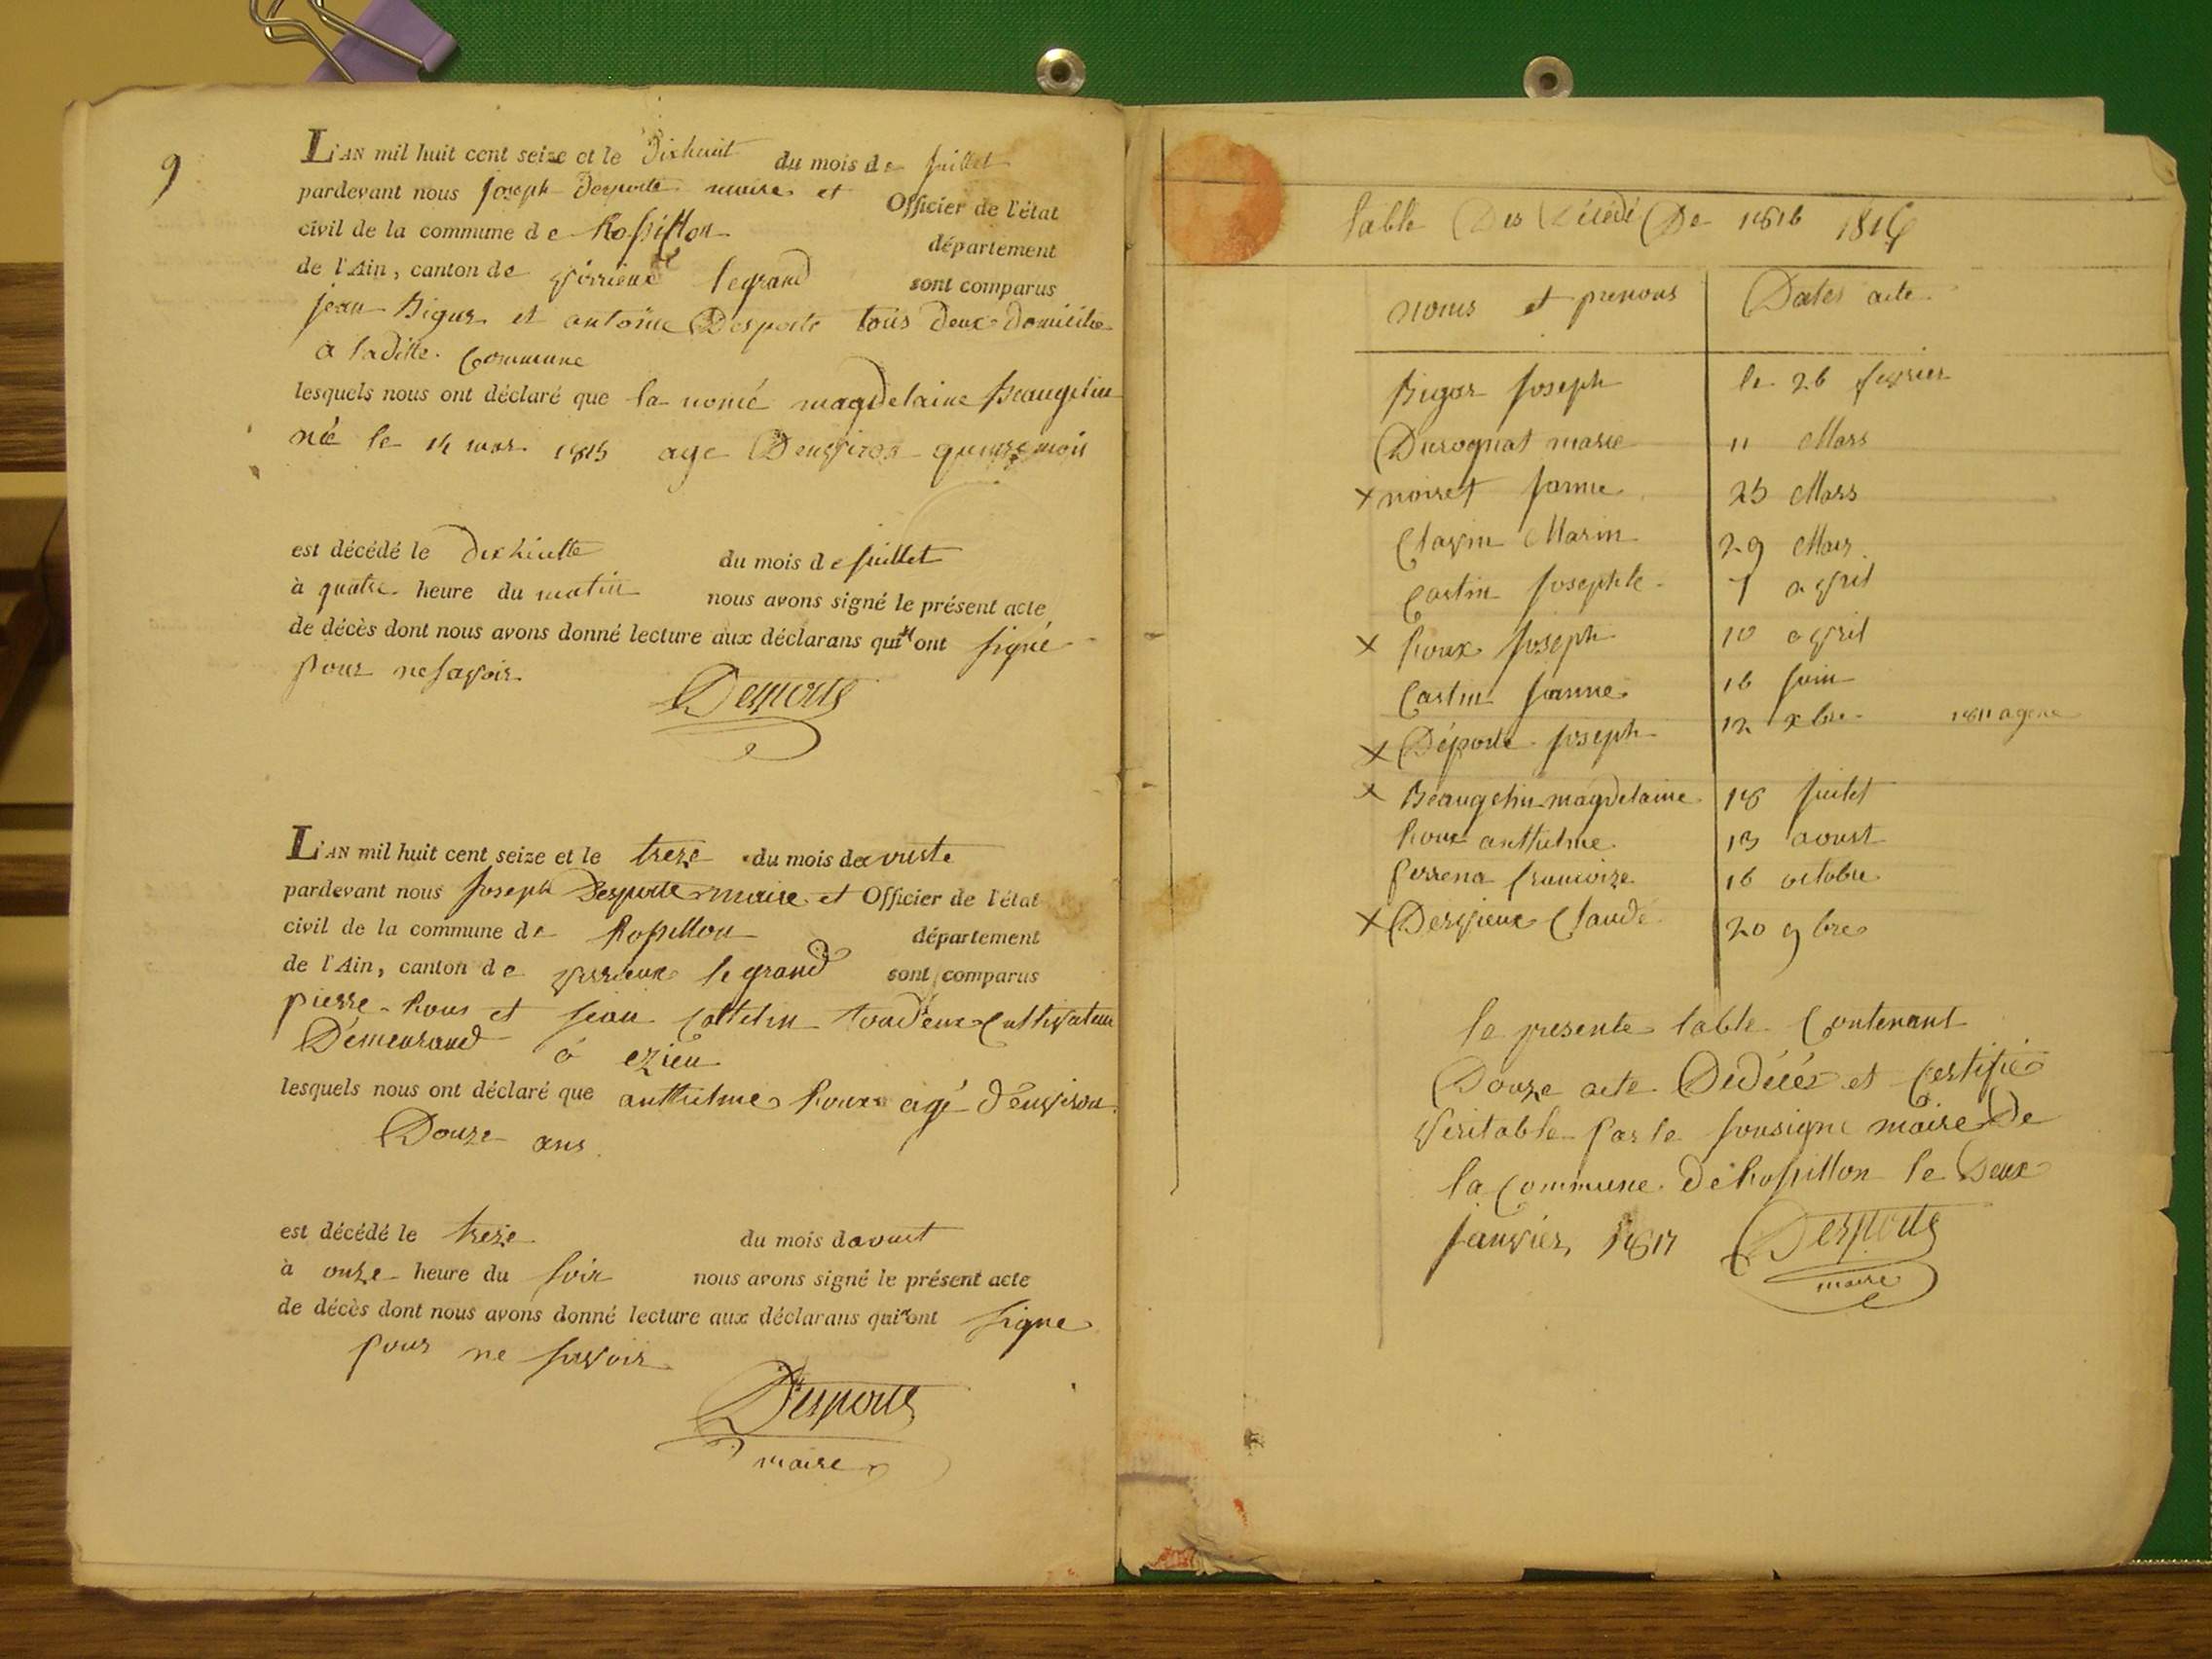 9
L'AN mil huit cent seize et le dixhuit du mois de juillet
pardevant nous joseph Desporte maire et Officier de l'état
civil de la commune de Rossillon département
de l'Ain, canton de virrieux legrand sont comparus
jean Bigur et antoine Desporte tous deux domicilie
a laditte Commune
lesquels nous ont déclaré que la nomé magdelaine Beaugelin
née le 14 mar 1815 age Denviron quinze mois
est décédé le dix huitte du mois de juillet
à quatre heure du matin nous avons signé le présent acte
de décès dont nous avons donné lecture aux déclarans qui ont signé
pour ne savoir
Desporte
L'AN mil huit cent seize et le treze du mois de avuste
pardevant nous joseph Desporte maire et Officier de l'état
civil de la commune de Rossillon département
de l'Ain, canton de virrieux le grand sont comparus
pierre Roux et jean Cattelin toud'eux Cultivateur
Demeurand a ezieu
lesquels nous ont déclaré que anthelme Roux agé d'environ
Douze ans
est décédé le treze du mois davout
à onze heure du soir nous avons signé le présent acte
de décès dont nous avons donné lecture aux déclarans qui ont signe
pour ne savoir
Desporte
maire
table Des Décédé De 1816 1816
noms et prenoms Dates acte
Bigar joseph le 26 fevrier
Durognat marie 11 Mars
x noiret janne 25 Mars
Clavin Marin 29 Mars
Castin josephte 7 avril
x Roux joseph 10 avril
Castin janne 16 juin
x Déporte joseph 12 xbre
x Beaugelin magdelaine 18 juilet
Roux anthelme 13 aoust
perrena francoize 16 octobre
x Dervieux Claude 20 9bre
la presente table Contenant
Douze acte Dedécés et Certifié
veritable par le sousigne maire De
la Commune de Rossillon le Deux
janvier 1817 Desporte
maire